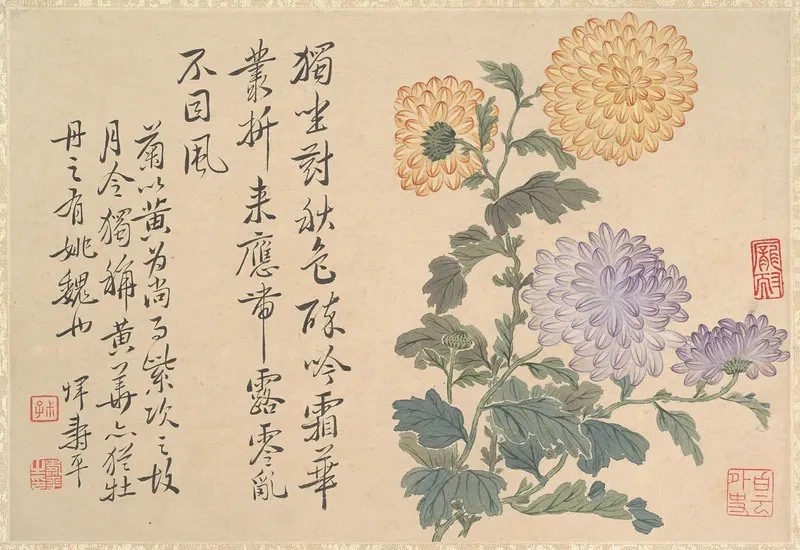 獨坐對秋色醉吟霜華
叢折来應帶露零亂
不因風
菊以黄为尚而紫次之故
月令獨稱黄華亦猶牡
丹之有姚魏也
惲壽平
白云外史